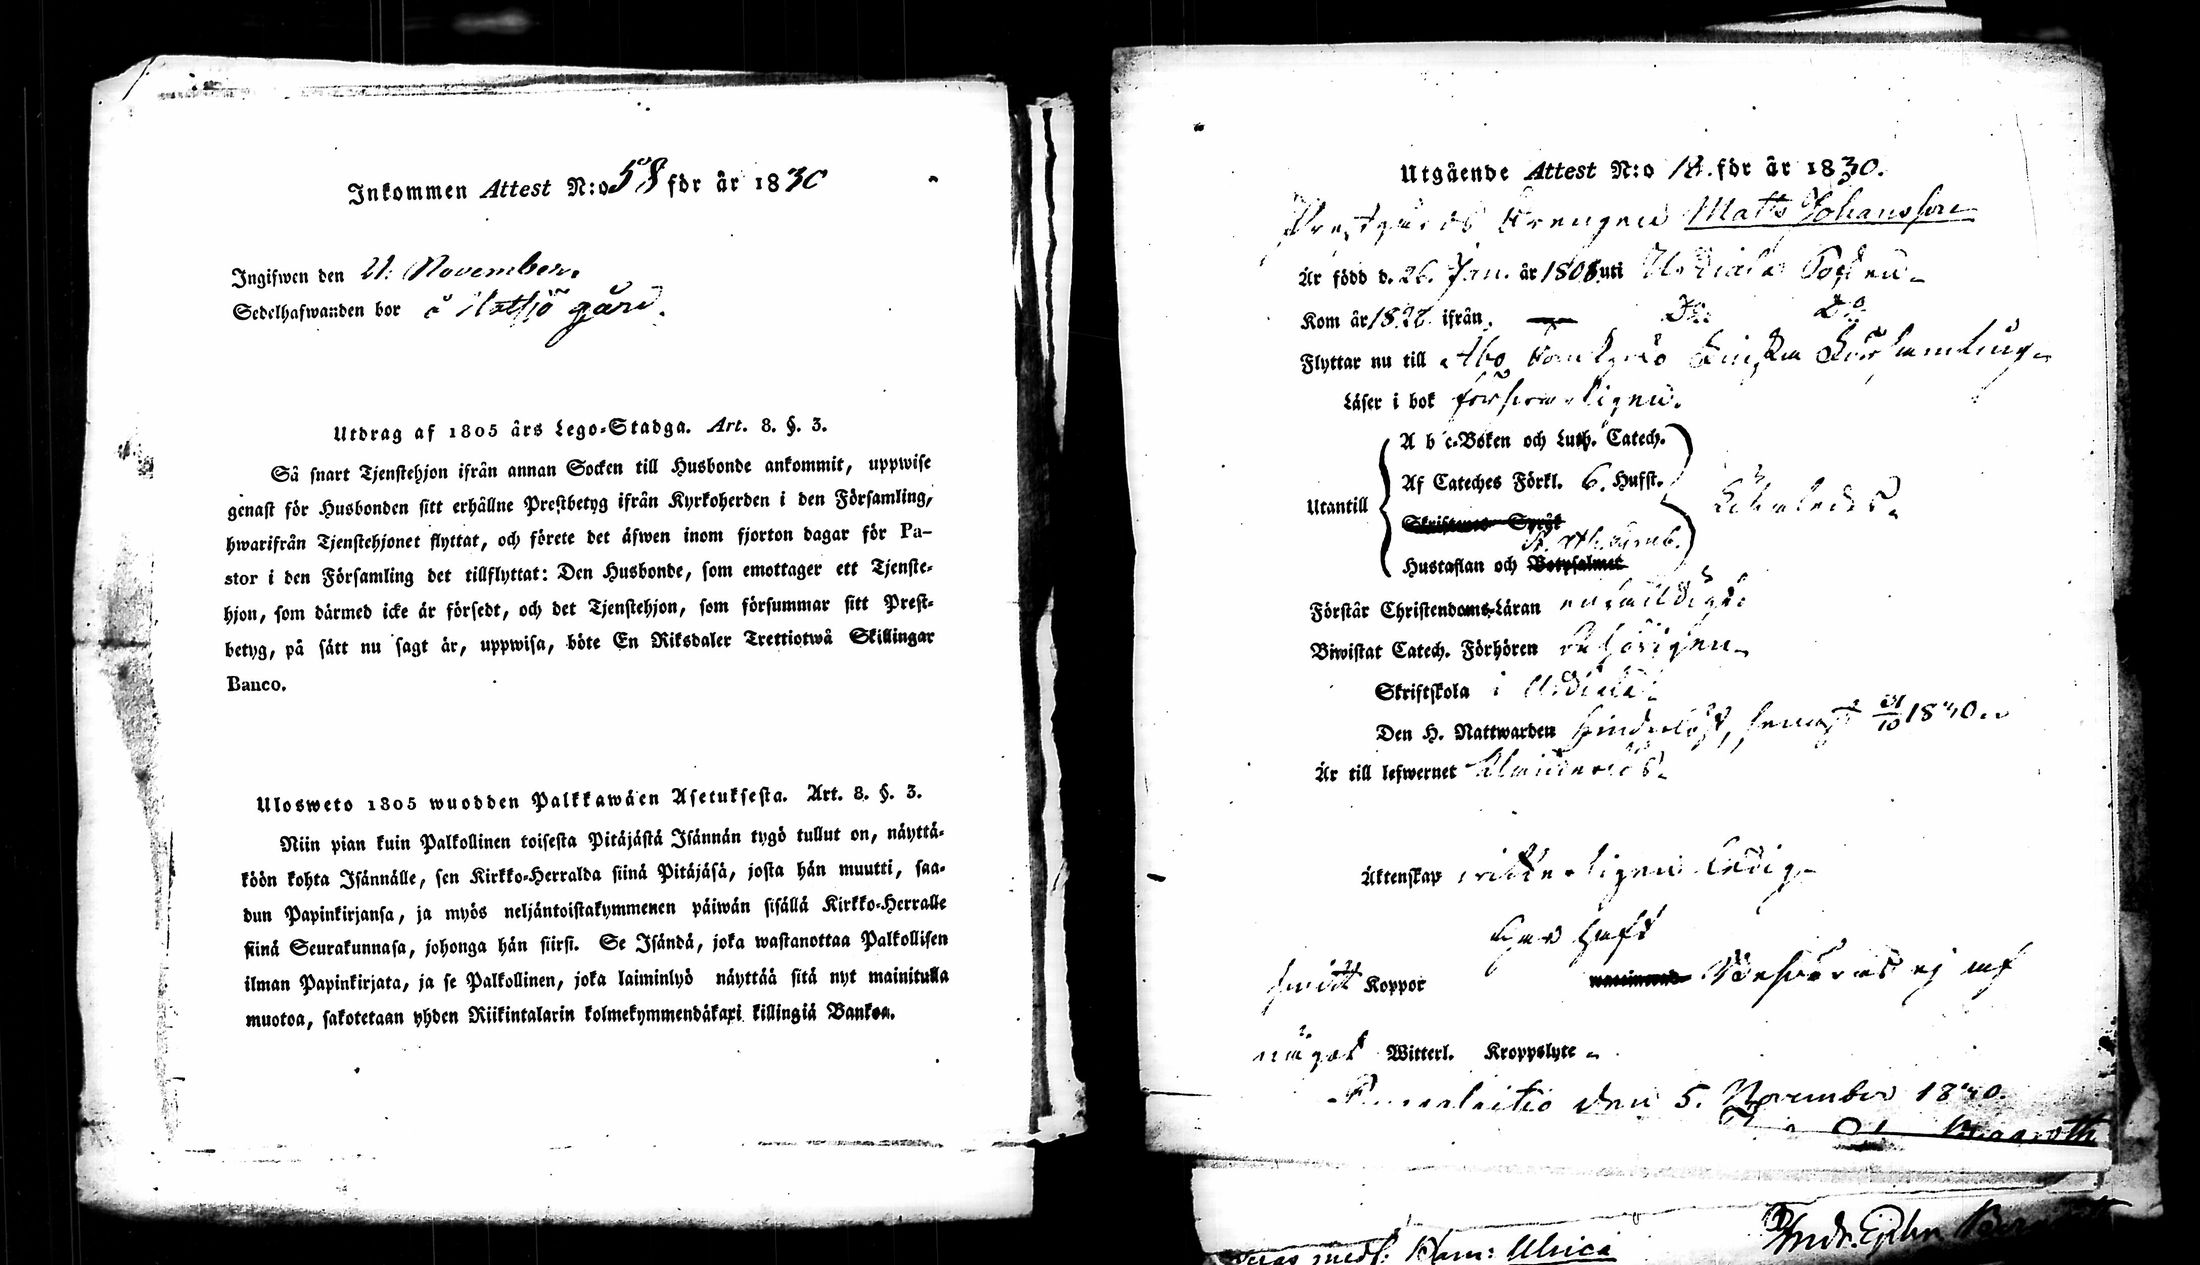 Inkommen Attest N:o 58 för år 1830
Ingifwen den 21. November.
Sedelhafwanden bor å gård.
Utdrag af 1805 års Lego-Stadga. Art. 8. §. 3.
Så snart Tjenstehjon ifrån annan Socken till Husbonde ankommit, uppwise
genast för Husbonden sitt erhållne Prestbetyg ifrån Kyrkoherden i den Församling,
hwarifrån Tjenstehjonet flyttat, och förete det äfwen inom fjorton dagar för Pa-
stor i den Församling det tillflyttat: Den Husbonde, som emottager ett Tjenste-
hjon, som därmed icke är försedt, och det Tjenstehjon, som försummar sitt Prest-
betyg, på sätt nu sagt är, uppwisa, böte En Riksdaler Trettiotwå Skillingar
Banco.
Ulosweto 1805 wuodden Palkkawäen Asetuksesta. Art. 8. §. 3.
Niin pian kuin Palkollinen toisesta Pitäjästä Isännän tygö tullut on, näyttä-
köön kohta Isännälle, sen Kirkko-Herralda siinä Pitäjäsä, josta hän muutti, saa-
dun Papinkirjansa, ja myös neljäntoistakymmenen päiwän sisällä Kirkko-Herralle
siinä Seurakunnasa, johonga hän siirsi. Se Isändä, joka wastanottaa Palkollisen
ilman Papinkirjata, ja se Palkollinen, joka laiminlyö näyttää sitä nyt mainitulla
muotoa, sakotetaan yhden Riikintalarin kolmekymmendäkaxi killingiä Bankoa.
Utgående Attest N:o 18. för år 1830.
Prestgårds Drengen Matts Johansson
Är född d. 26. Jan. år 1808 uti Urdiala Socken
Kom år 1822 ifrån D:o D:o
Flyttar nu till Åbo Domkyrko Finska Församling
Läser i bok försvarligen.
A b c-Boken och Luth. Catech.
Af Cateches Förkl. 6. Hufst.
Utantill
Skriftenes Språk
Hustaflan och Botpsalmer
Förstår Christendoms-Läran enfaldigt
Biwistat Catech. Förhören behörigen
Skriftskola i Urdiala
Den H. Nattwarden hinderlöst, senast 31/10 1830
Är till lefwernet
Äktenskap witterligen ledig
Har haft
Koppor Besväras ej af
något Witterl. Kroppslyte
den 5. November 1830.
medf. Ulrica